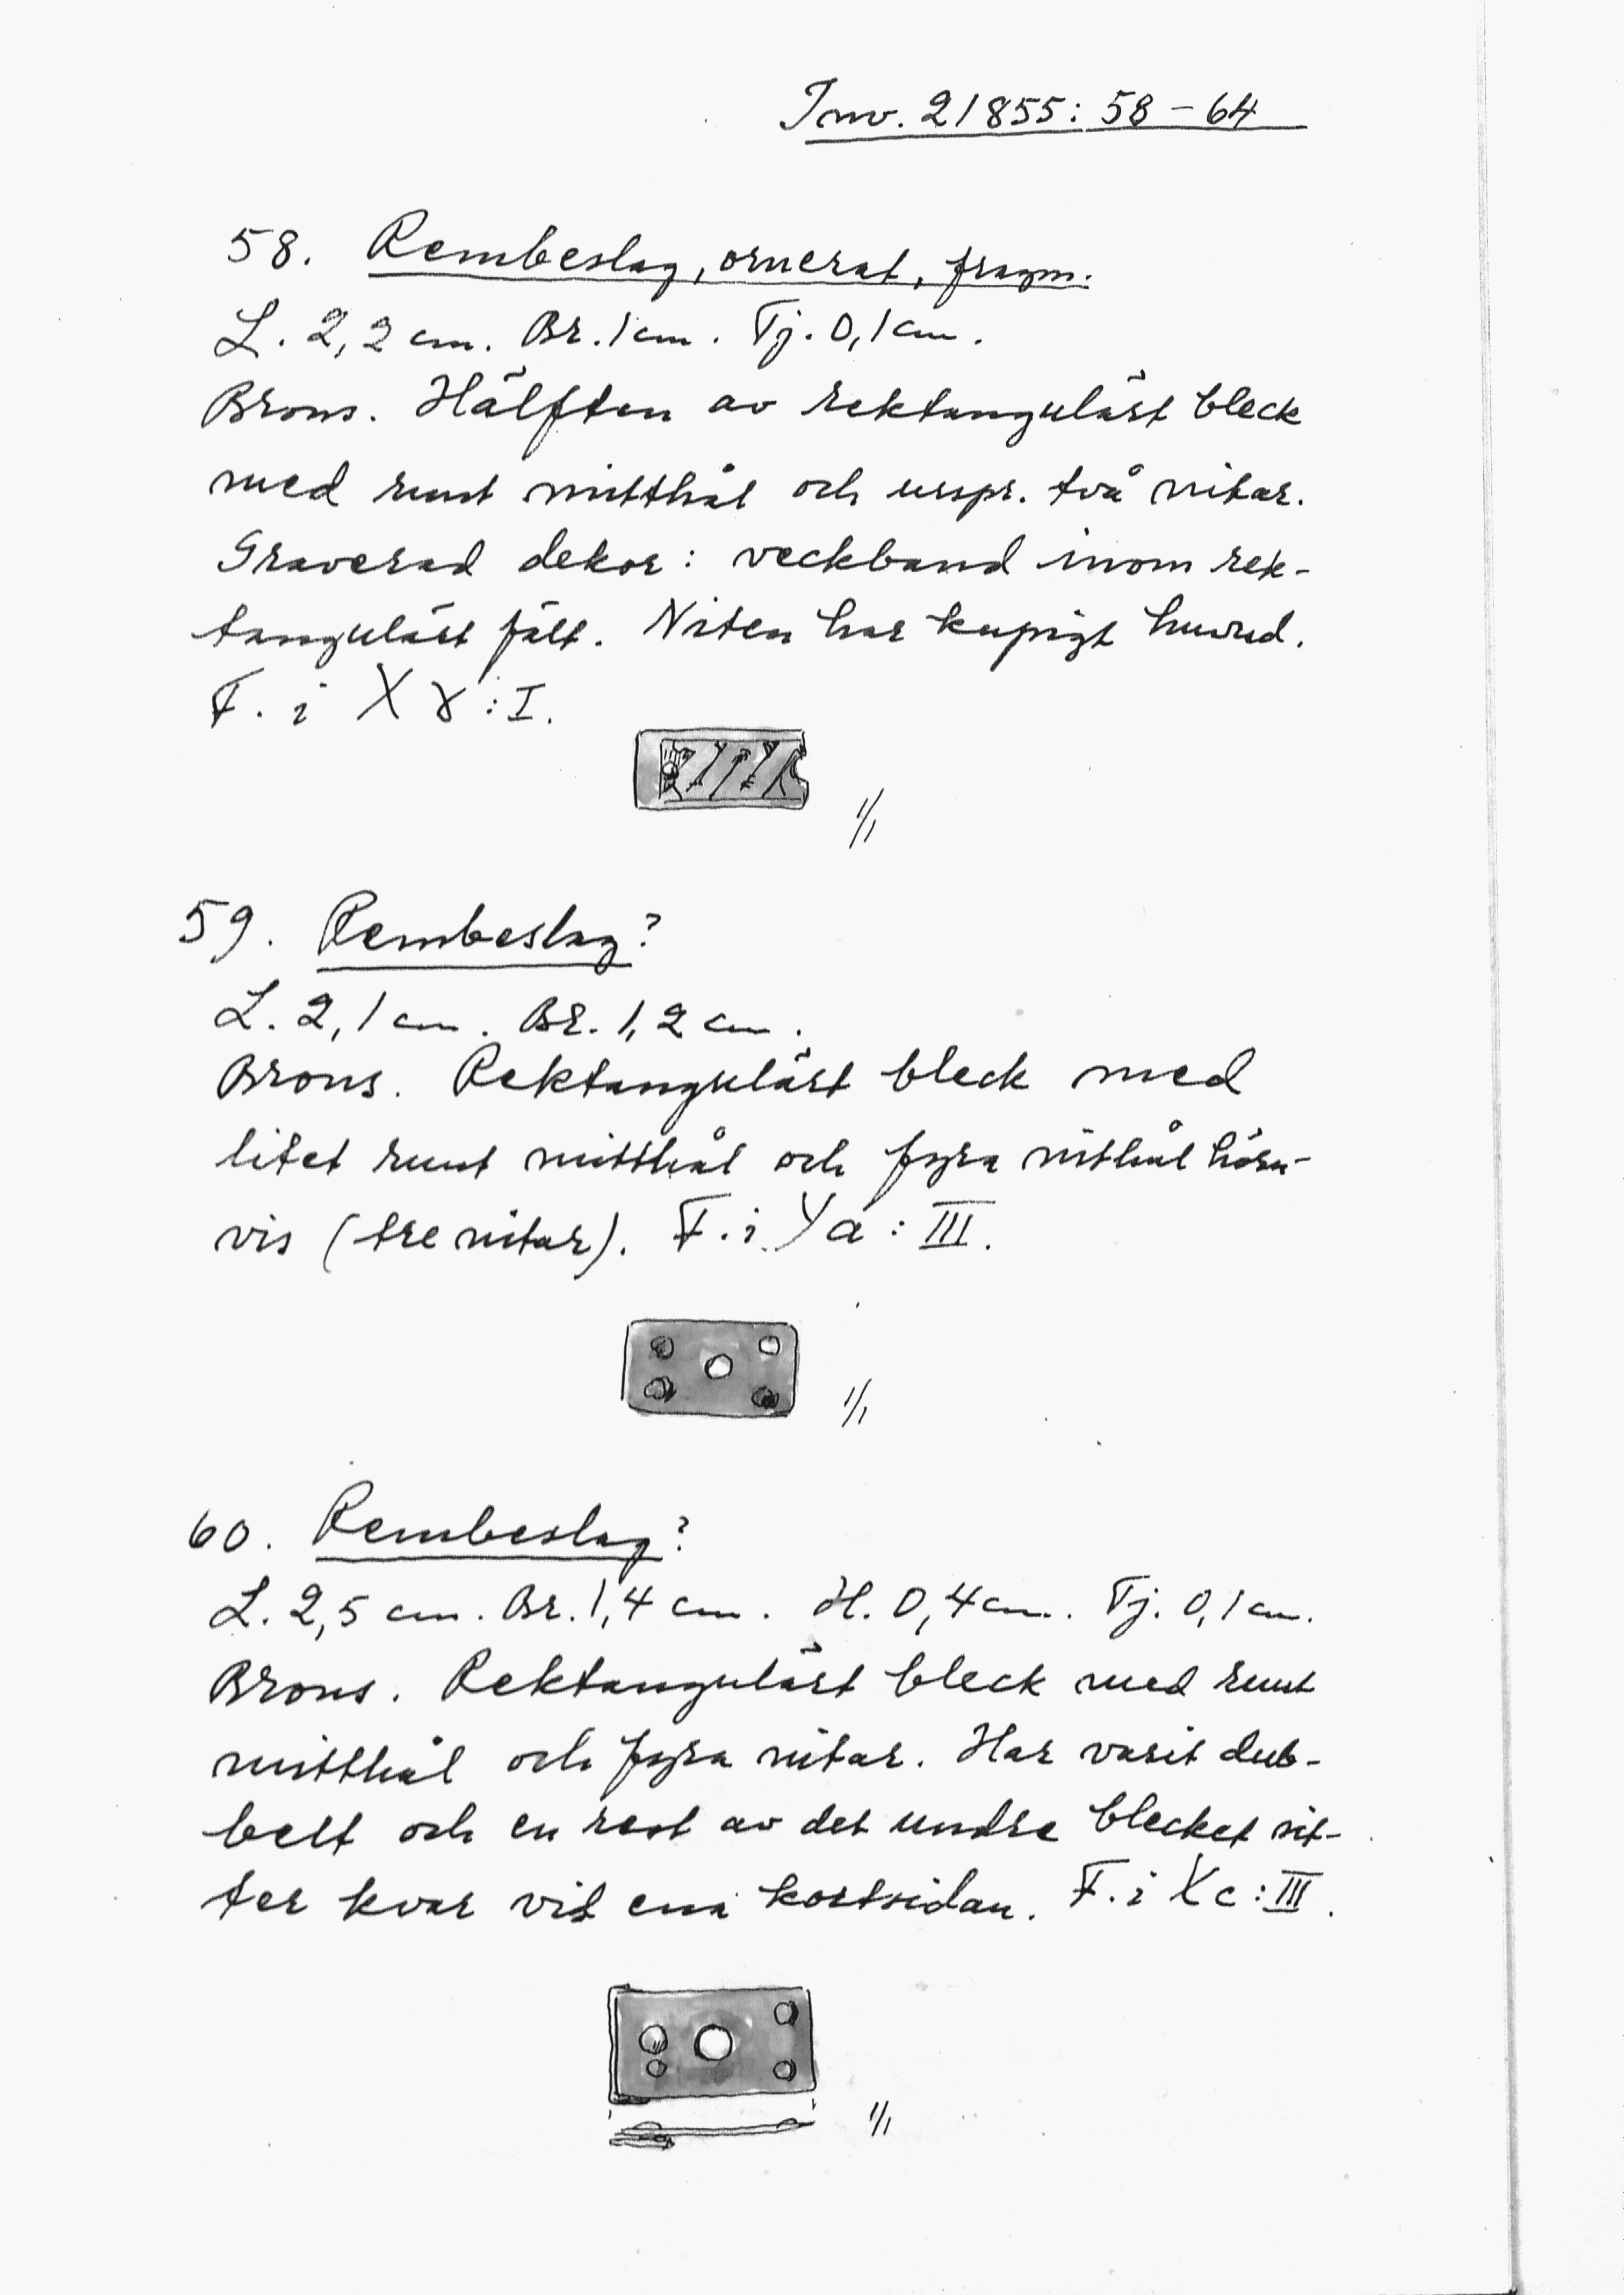 Inv. 21855: 58 - 64
58. Rembeslag, ornerat, fragm.
L. 2,2 cm. Br. 1 cm. Tj. 0,1 cm.
Brons. Hälften av rektangulärt bleck
med runt mitthål och urspr. två nitar.
Graverad dekor: veckband inom rek-
tangulärt fält. Niten har kupigt huvud.
F. i X 8 : I.
1/1
59. Rembeslag?
L. 2,1 cm. Br. 1,2 cm.
Brons. Rektangulärt bleck med
litet runt mitthål och fyra nithål hörn-
vis (tre nitar). F. i Y a : III.
1/1
60. Rembeslag?
L. 2,5 cm. Br. 1,4 cm. H. 0,4 cm. Tj. 0,1 cm.
Brons. Rektangulärt bleck med runt
mitthål och fyra nitar. Har varit dub-
belt och en rest av det undre blecket sit-
ter kvar vid ena kortsidan. F. i X c : III.
1/1